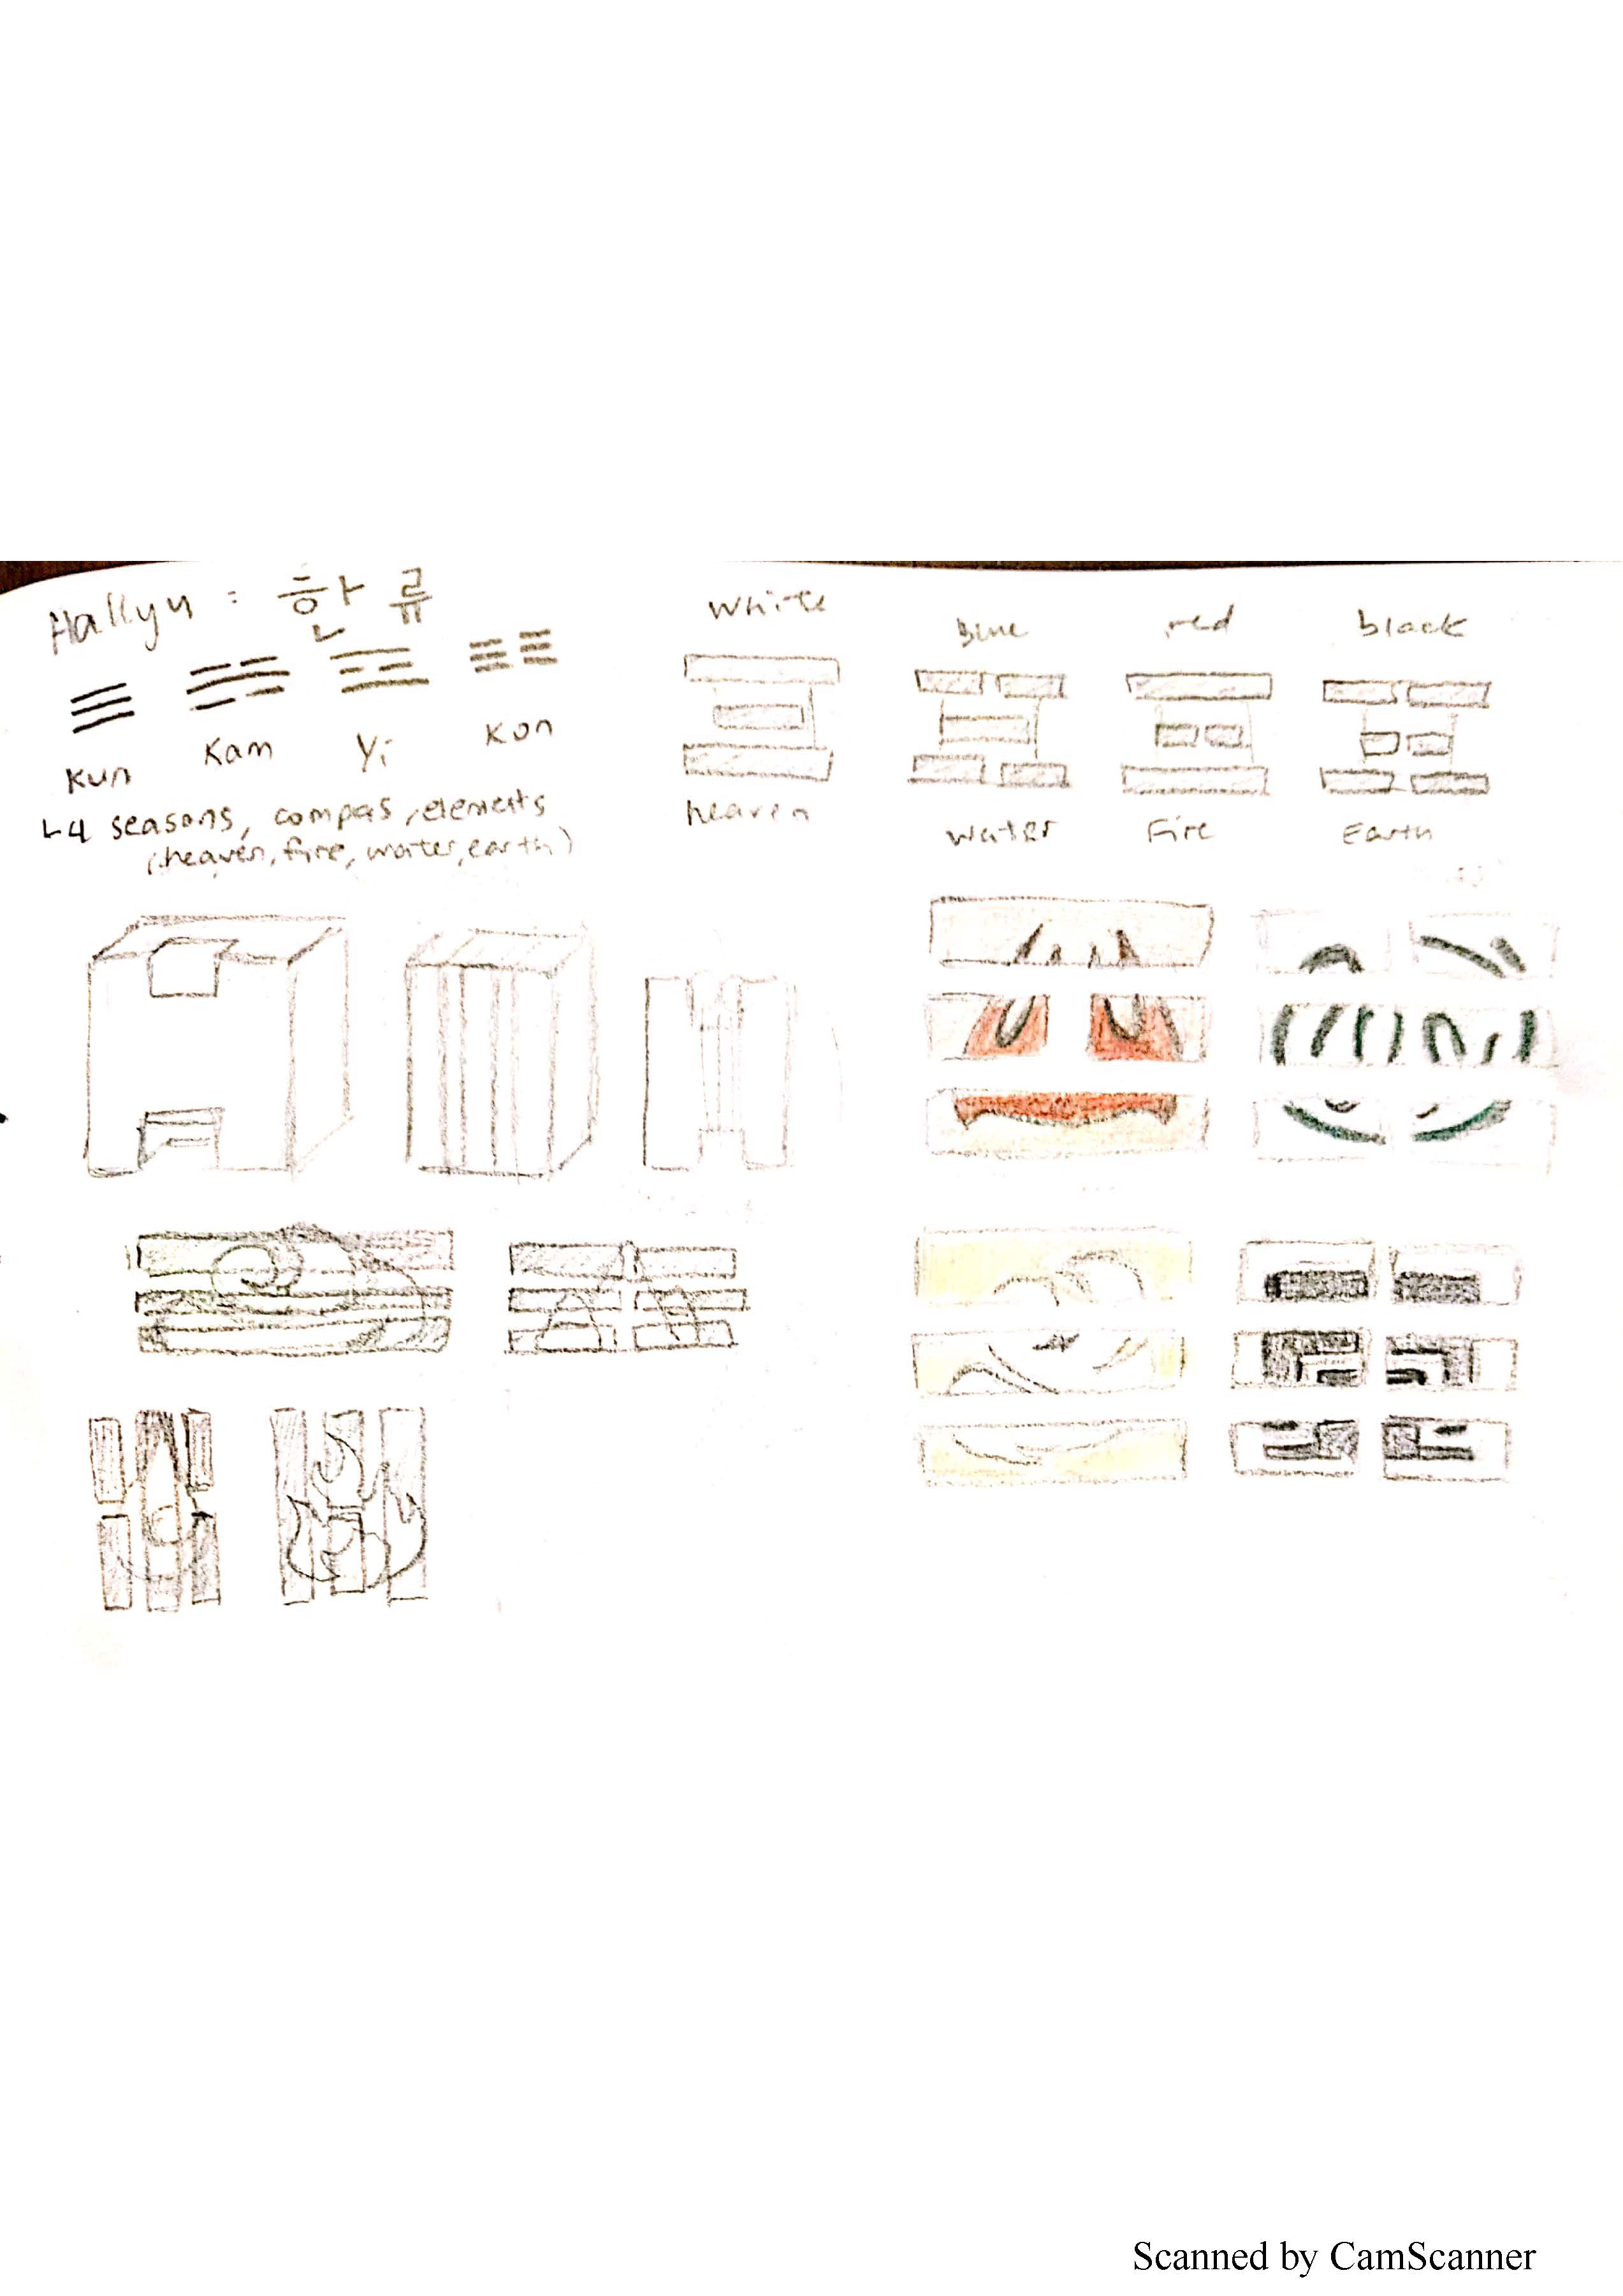 Hallyu : 한류
Kun Kam Yi Kon
4 seasons, compas, elements
(heaven, fire, water, earth)
White Blue red black
heaven water Fire Earth
Scanned by CamScanner